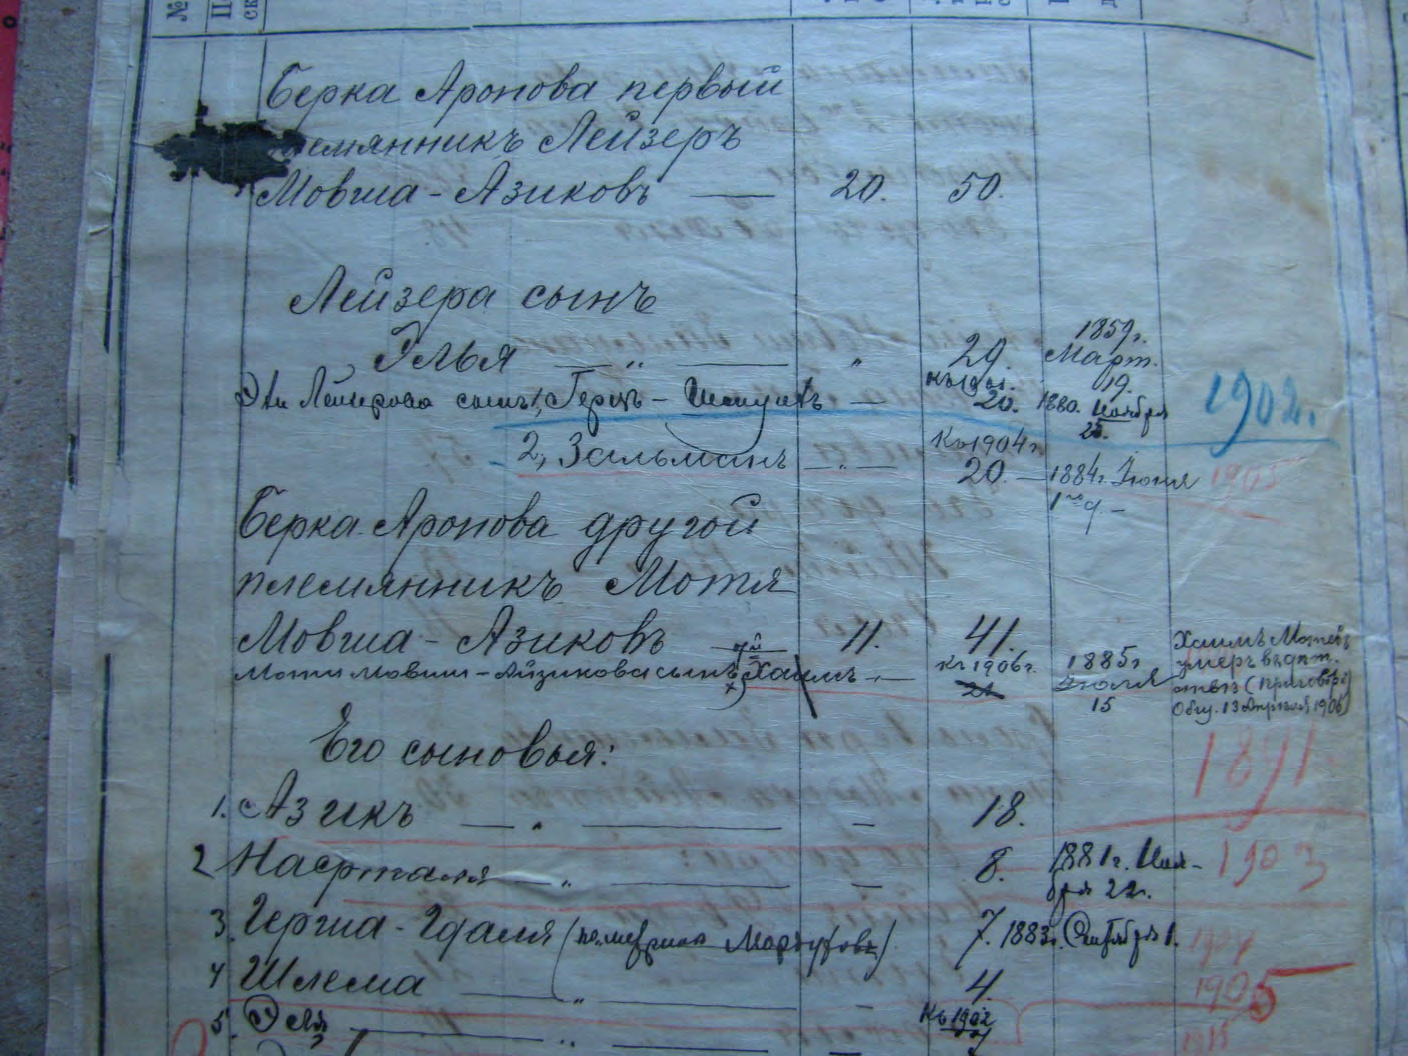 №
Берка Аронова первый
племянникъ Лейзеръ
Мовша-Азиковъ — 20. 50.
Лейзера сынъ
Элья — „ — „ 29. 1859г. Март. 19.
Эли Лейзерова сынъ 1, Герцъ - — Къ 1901. 20. 1880. Ноября 25. 1902г.
2, Зальманъ — „ — Къ 1904г. 20. — 1884г. Іюня 1го д. — 1905
Берка Аронова другой
племянникъ Мотя
Мовша-Азиковъ — 11. 41.
Моти Мовши-Айзикова сынъ Хаимъ — Къ 1906г. 21 1885г. Іюля 15
Хаимъ
умеръ
13 Апреля 1906
1891
Его сыновья:
1. Азикъ — „ — — 18.
2 Нафталя — „ — — 8. 1881г. 22г. 1903
3. Герша-Гдаля 7. 1883г. Сентября 1. 1904
4 Шлема — „ — — 4. 1905
5. — „ — — Къ 1902 1915